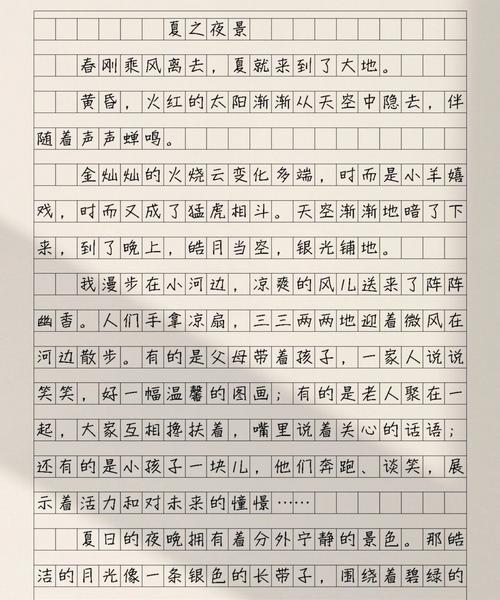 夏之夜景
春刚乘风离去，夏就来到了大地。
黄昏，火红的太阳渐渐从天空中隐去，伴
随着声声蝉鸣。
金灿灿的火烧云变化多端，时而是小羊嬉
戏，时而又成了猛虎相斗。天空渐渐地暗了下
来，到了晚上，皓月当空，银光铺地。
我漫步在小河边，凉爽的风儿送来了阵阵
幽香。人们手拿凉扇，三三两两地迎着微风在
河边散步。有的是父母带着孩子，一家人说说
笑笑，好一幅温馨的图画；有的是老人聚在一
起，大家互相搀扶着，嘴里说着关心的话语；
还有的是小孩子一块儿，他们奔跑、谈笑，展
示着活力和对未来的憧憬……
夏日的夜晚拥有着分外宁静的景色。那皓
洁的月光像一条银色的长带子，围绕着碧绿的